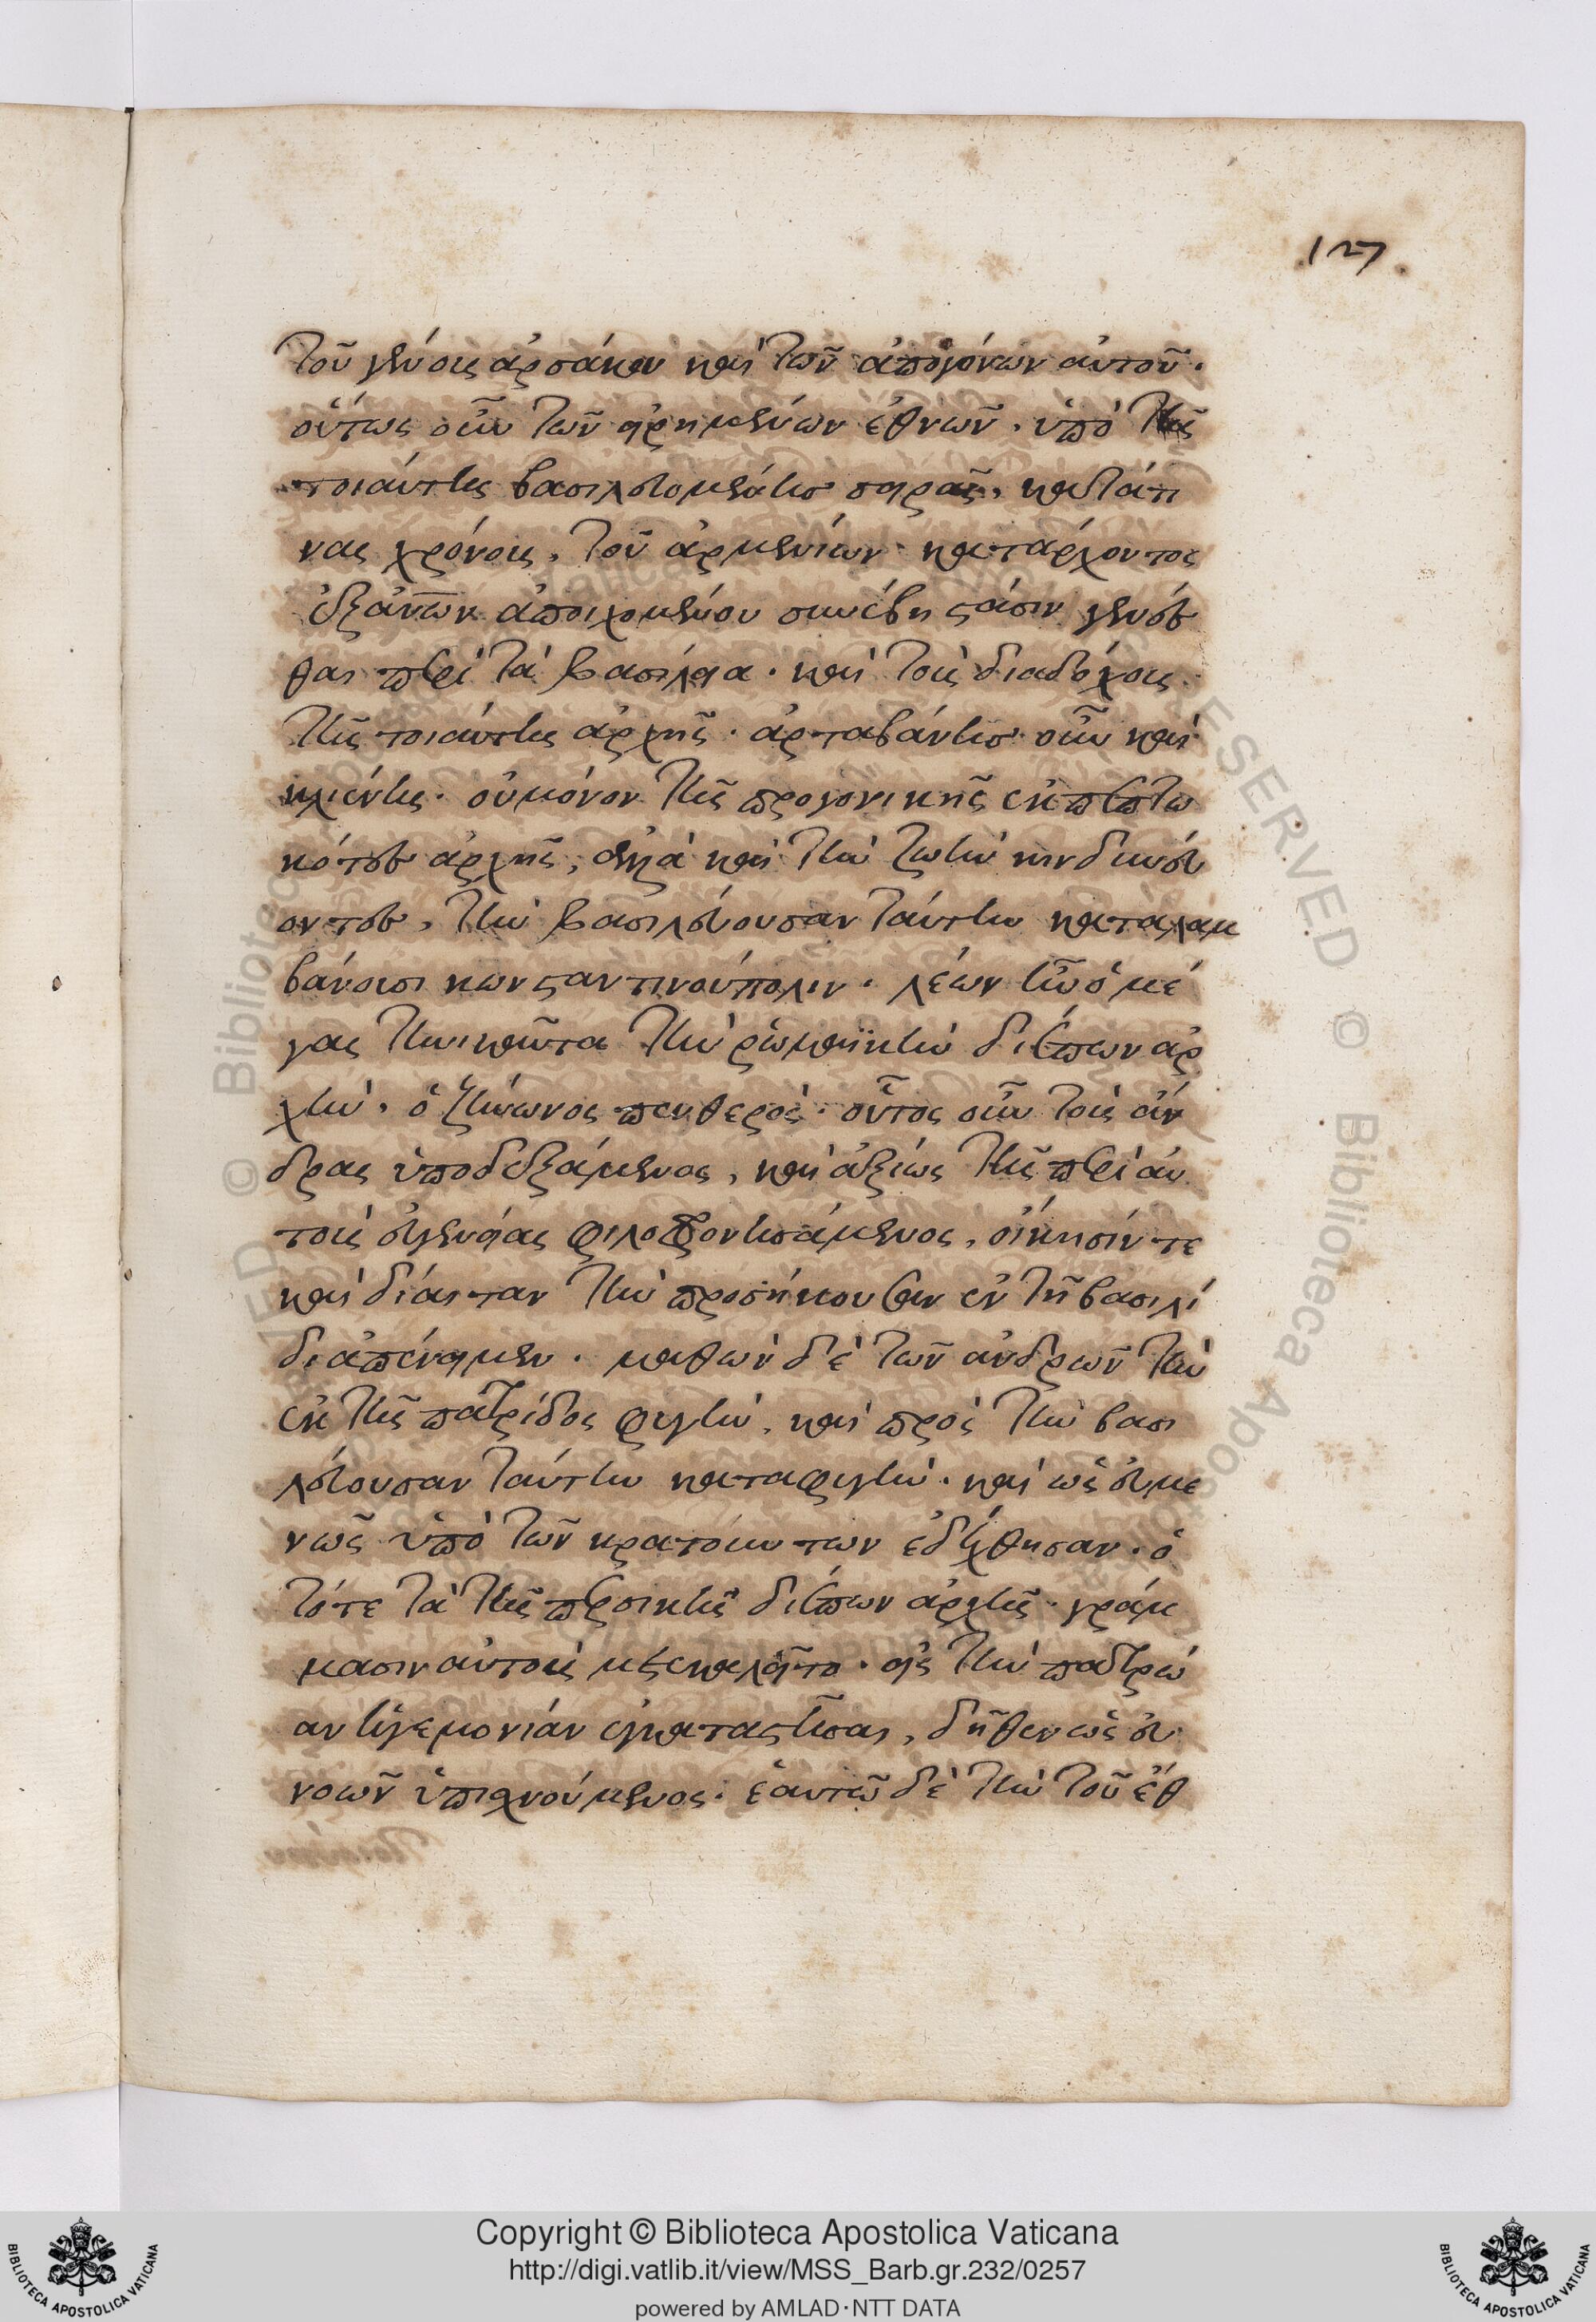 127
τοῦ γένους ἀρσάκου καὶ τῶν ἀπογόνων αὐτοῦ.
οὕτως οὖν τῶν εἰρημένων ἐθνῶν. ὑπὸ τῆς
τοιαύτης βασιλευομένων σειρᾶς, κατά τι
νας χρόνους, τοῦ ἀρμενίων κατάρχοντος
ἐξ αὐτῶν ἀποιχομένου συνέβη στάσιν γενέσ
θαι περὶ τὰ βασίλεια. καὶ τοὺς διαδόχους
τῆς τοιαύτης ἀρχῆς. ἀρταβάνης οὖν καὶ
κλιένης. οὐ μόνον τῆς προγονικῆς ἐκπεπτω
κότες ἀρχῆς, ἀλλὰ καὶ τὴν ζωὴν κινδυνεύ
οντες, τὴν βασιλεύουσαν ταύτην καταλαμ
βάνουσι κωνσταντινούπολιν. λέων ἦν ὁ μέ
γας τηνικαῦτα τὴν ῥωμαϊκὴν διέπων ἀρ
χήν. ὁ ζήνωνος πενθερός. οὗτος οὖν τοὺς ἄν
δρας ὑποδεξάμενος, καὶ ἀξίως τῆς περὶ αὐ
τοὺς εὐγενείας φιλοφρονησάμενος, οἴκησίν τε
καὶ δίαιταν τὴν προσήκουσαν ἐν τῇ βασιλί
δι ἀπένειμεν. μαθὼν δὲ τῶν ἀνδρῶν τὴν
ἐκ τῆς πατρίδος φυγὴν, καὶ πρὸς τὴν βασι
λεύουσαν ταύτην καταφυγήν. καὶ ὡς εὐμε
νῶς ὑπὸ τῶν κρατούντων ἐδέχθησαν. ὁ
τότε τὰ τῆς περσικῆς διέπων ἀρχῆς. γράμ
μασιν αὐτοὺς μετεκαλεῖτο. εἰς τὴν πατρώ
αν ἡγεμονίαν ἐγκαταστῆσαι, δῆθεν ὡς εὐ
νοῶν ὑπισχνούμενος. ἑαυτῷ δὲ τὴν τοῦ ἔθ
Copyright © Biblioteca Apostolica Vaticana
http://digi.vatlib.it/view/MSS_Barb.gr.232/0257
powered by AMLAD·NTT DATA